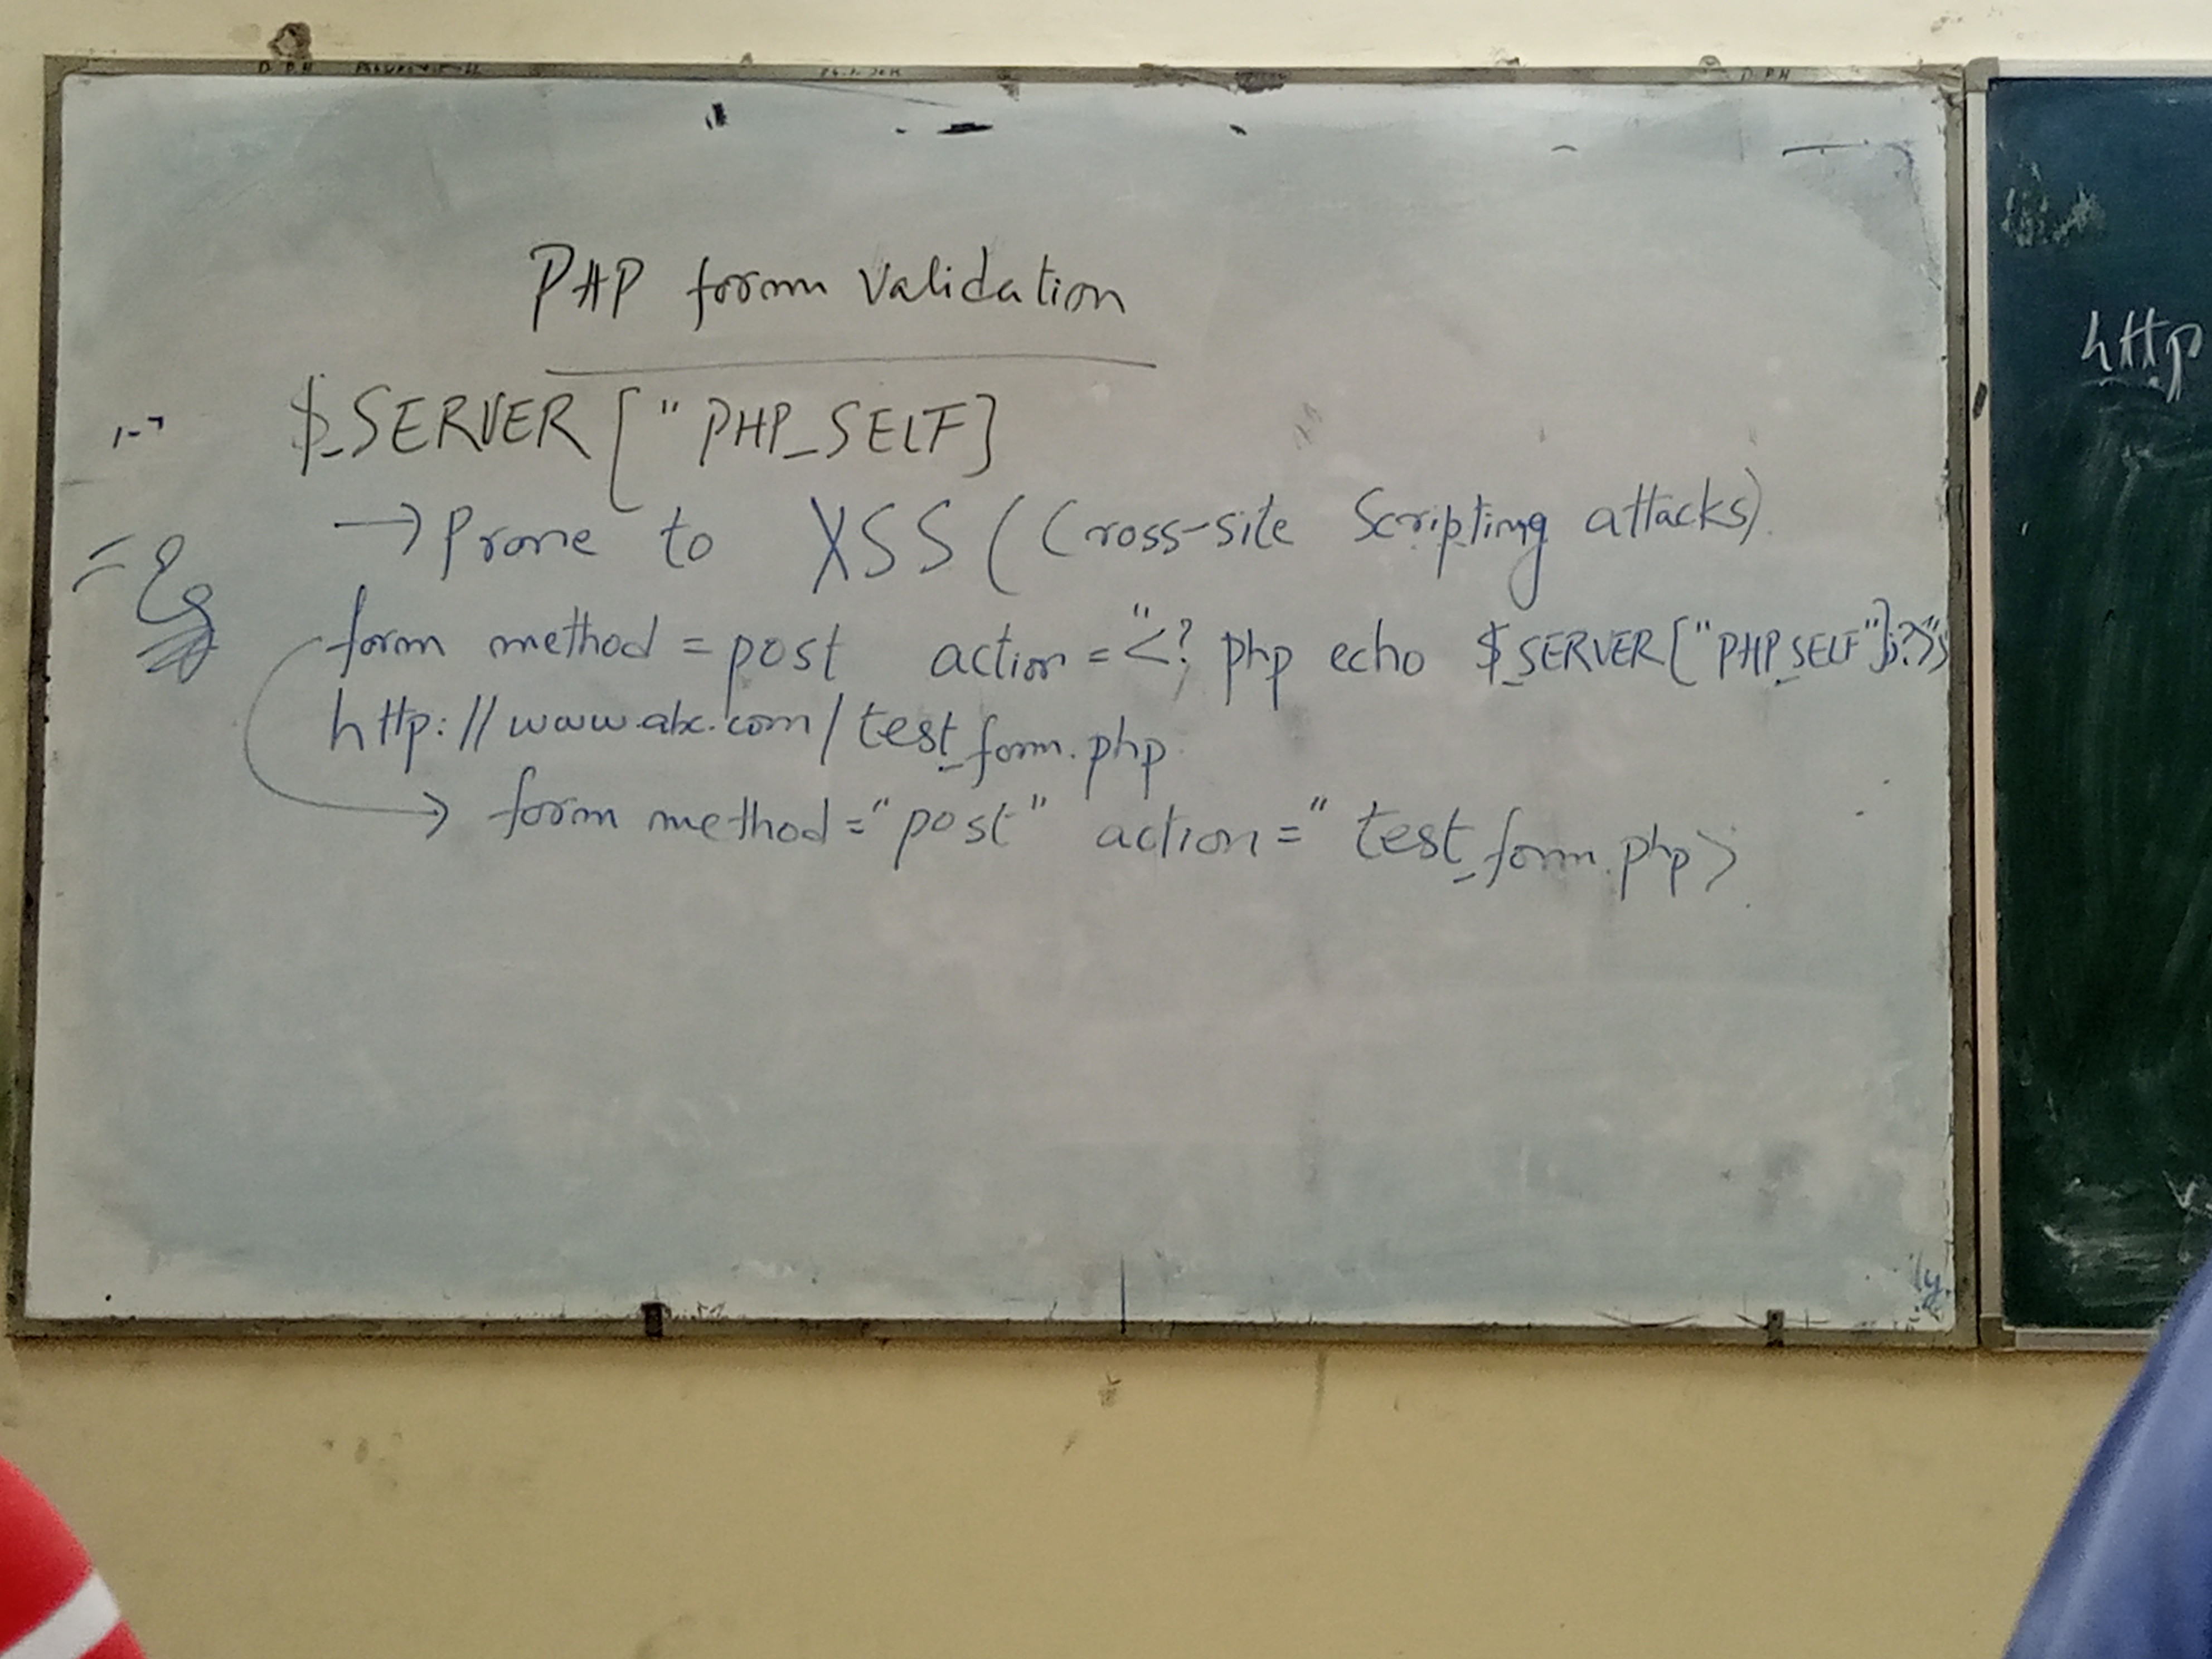 PHP form Validation
$_SERVER ["PHP_SELF]
→ Prone to XSS (Cross-site Scripting attacks).
= Eg
form method = post action = "<? php echo $_SERVER["PHP_SELF"];?>">
http://www.abc.com/test_form.php
→ form method = "post" action = " test_form.php>
http